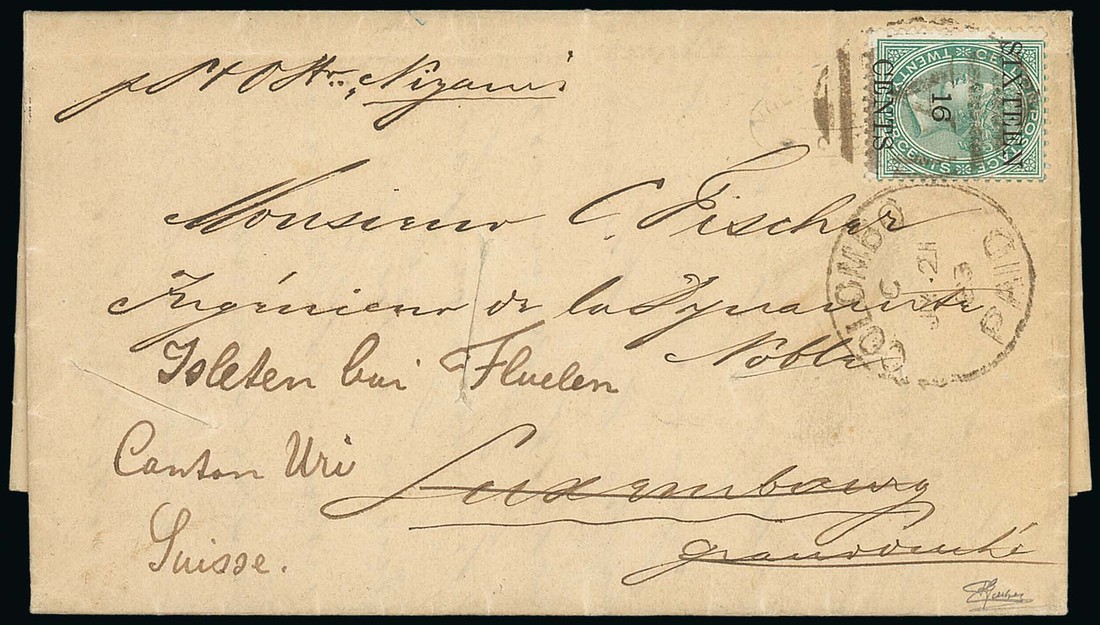 p P & O Str. "Nizam"
Monsieur C. Fischer
Ingénieur de la Dynamite
Nobla
Isleten bei Fluelen
Canton Uri
Suisse.
Luxembourg
grand Duché
POSTAGE
TWENTY FOUR CENTS
SIXTEEN
16
CENTS
COLOMBO
C
21
83
PAID